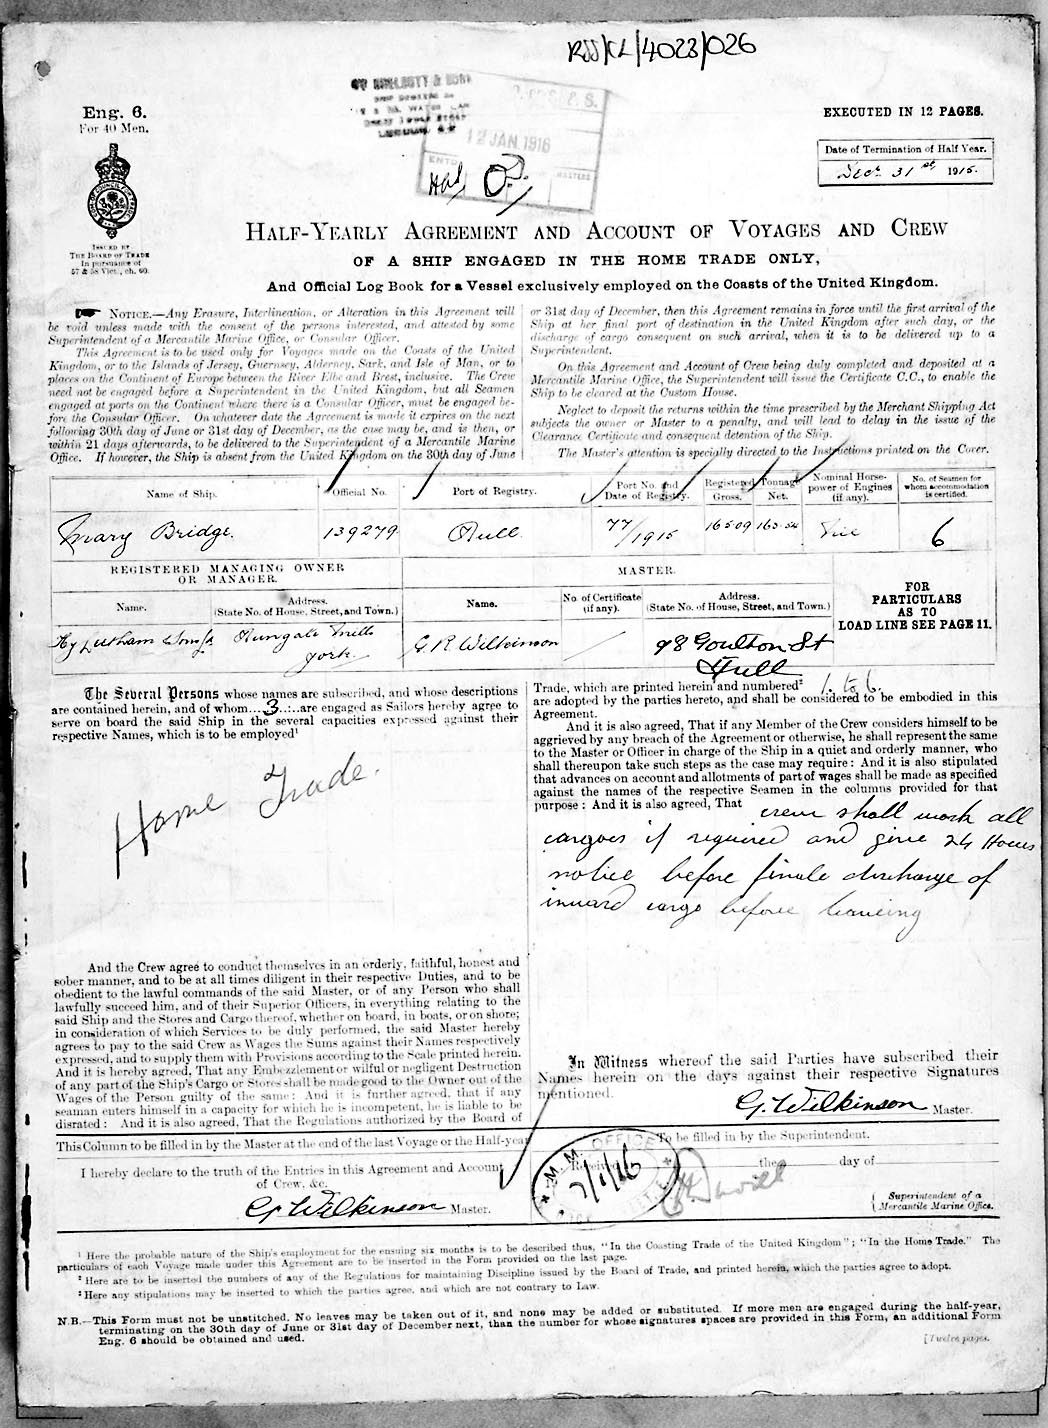 RSS/CL/4023/026
Eng. 6.
For 40 Men.
EXECUTED IN 12 PAGES.
Date of Termination of Half Year.
Dec. 31st, 1915.
12 JAN 1916
ISSUED BY
THE BOARD OF TRADE
In pursuance of
57 & 58 Vict., ch. 60.
HALF-YEARLY AGREEMENT AND ACCOUNT OF VOYAGES AND CREW
OF A SHIP ENGAGED IN THE HOME TRADE ONLY,
And Official Log Book for a Vessel exclusively employed on the Coasts of the United Kingdom.
NOTICE.—Any Erasure, Interlineation, or Alteration in this Agreement will
be void unless made with the consent of the persons interested, and attested by some
Superintendent of a Mercantile Marine Office, or Consular Officer.
This Agreement is to be used only for Voyages made on the Coasts of the United
Kingdom, or to the Islands of Jersey, Guernsey, Alderney, Sark, and Isle of Man, or to
places on the Continent of Europe between the River Elbe and Brest, inclusive. The Crew
need not be engaged before a Superintendent in the United Kingdom, but all Seamen
engaged at ports on the Continent where there is a Consular Officer, must be engaged be-
fore the Consular Officer. On whatever date the Agreement is made it expires on the next
following 30th day of June or 31st day of December, as the case may be, and is then, or
within 21 days afterwards, to be delivered to the Superintendent of a Mercantile Marine
Office. If however, the Ship is absent from the United Kingdom on the 30th day of June
or 31st day of December, then this Agreement remains in force until the first arrival of the
Ship at her final port of destination in the United Kingdom after such day, or the
discharge of cargo consequent on such arrival, when it is to be delivered up to a
Superintendent.
On this Agreement and Account of Crew being duly completed and deposited at a
Mercantile Marine Office, the Superintendent will issue the Certificate C.C., to enable the
Ship to be cleared at the Custom House.
Neglect to deposit the returns within the time prescribed by the Merchant Shipping Act
subjects the owner or Master to a penalty, and will lead to delay in the issue of the
Clearance Certificate and consequent detention of the Ship.
The Master's attention is specially directed to the Instructions printed on the Cover.
Name of Ship. Official No. Port of Registry. Port No. and Date of Registry. Registered Tonnage Gross. Net. Nominal Horse-power of Engines (if any). No. of Seamen for whom accommodation is certified.
Mary Bridge. 139279 Hull 77/1915 165.09 163.54 Nil 6
REGISTERED MANAGING OWNER
OR MANAGER.
MASTER.
FOR
PARTICULARS
AS TO
LOAD LINE SEE PAGE 11.
Name. Address. (State No. of House, Street, and Town.) Name. No. of Certificate (if any). Address. (State No. of House, Street, and Town.)
Hy Leetham & Sons Ld Hungate Mills York. G R Wilkinson 98 Goulton St
Hull
The Several Persons whose names are subscribed, and whose descriptions
are contained herein, and of whom...3...are engaged as Sailors hereby agree to
serve on board the said Ship in the several capacities expressed against their
respective Names, which is to be employed¹
Home Trade.
And the Crew agree to conduct themselves in an orderly, faithful, honest and
sober manner, and to be at all times diligent in their respective Duties, and to be
obedient to the lawful commands of the said Master, or of any Person who shall
lawfully succeed him, and of their Superior Officers, in everything relating to the
said Ship and the Stores and Cargo thereof, whether on board, in boats, or on shore;
in consideration of which Services to be duly performed, the said Master hereby
agrees to pay to the said Crew as Wages the Sums against their Names respectively
expressed, and to supply them with Provisions according to the Scale printed herein.
And it is hereby agreed, That any Embezzlement or wilful or negligent Destruction
of any part of the Ship's Cargo or Stores shall be made good to the Owner out of the
Wages of the Person guilty of the same: And it is further agreed, that if any
seaman enters himself in a capacity for which he is incompetent, he is liable to be
disrated: And it is also agreed, That the Regulations authorized by the Board of
Trade, which are printed herein and numbered² 1 to 6.
are adopted by the parties hereto, and shall be considered to be embodied in this
Agreement.
And it is also agreed, That if any Member of the Crew considers himself to be
aggrieved by any breach of the Agreement or otherwise, he shall represent the same
to the Master or Officer in charge of the Ship in a quiet and orderly manner, who
shall thereupon take such steps as the case may require: And it is also stipulated
that advances on account and allotments of part of wages shall be made as specified
against the names of the respective Seamen in the columns provided for that
purpose: And it is also agreed, That crew shall work all
cargoes if required and give 24 Hours
notice before finale discharge of
inward cargo before leaveing
In Witness whereof the said Parties have subscribed their
Names herein on the days against their respective Signatures
mentioned.
G. Wilkinson Master.
This Column to be filled in by the Master at the end of the last Voyage or the Half-year
I hereby declare to the truth of the Entries in this Agreement and Account
of Crew, &c.
G. Wilkinson Master.
To be filled in by the Superintendent.
Received the day of
M. M. OFFICE
7/1/16
Superintendent of a
Mercantile Marine Office.
¹ Here the probable nature of the Ship's employment for the ensuing six months is to be described thus, "In the Coasting Trade of the United Kingdom"; "In the Home Trade." The
particulars of each Voyage made under this Agreement are to be inserted in the Form provided on the last page.
² Here are to be inserted the numbers of any of the Regulations for maintaining Discipline issued by the Board of Trade, and printed herein, which the parties agree to adopt.
³ Here any stipulations may be inserted to which the parties agree, and which are not contrary to Law.
N.B.—This Form must not be unstitched. No leaves may be taken out of it, and none may be added or substituted. If more men are engaged during the half-year,
terminating on the 30th day of June or 31st day of December next, than the number for whose signatures spaces are provided in this Form, an additional Form
Eng. 6 should be obtained and used.
[Twelve pages.